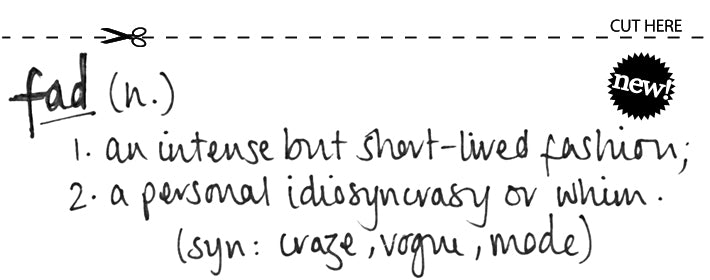 CUT HERE
new!
fad (n.)
1. an intense but short-lived fashion;
2. a personal idiosyncrasy or whim.
(syn: craze, vogue, mode)